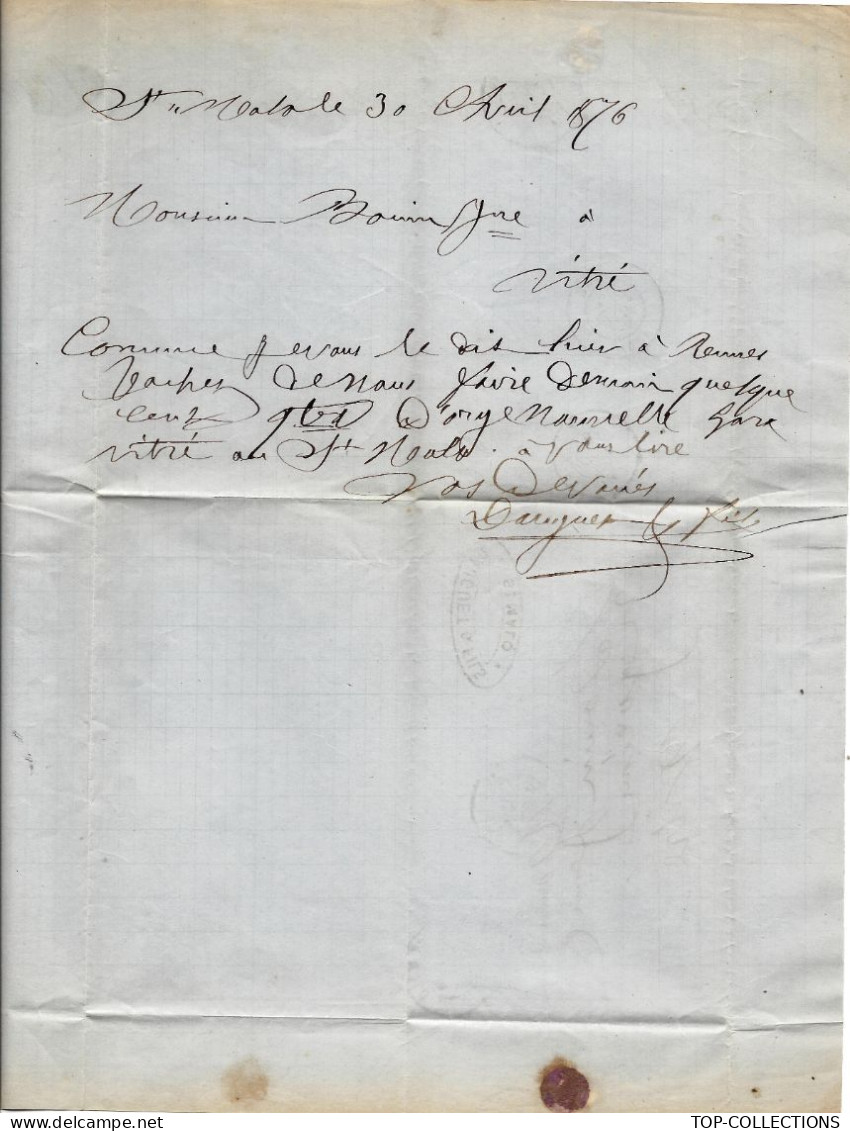 St Malo le 30 Avril 1876
Monsieur Jne à
Vitré
Comme je vous le dis hier à Rennes
tachez de nous faire demain quelque
cent qtx d'orge nouvelle gare
Vitré ou St Malo. à vous lire
Vos Dévoués
Daruguet & fils
ST MALO
TOP-COLLECTIONS